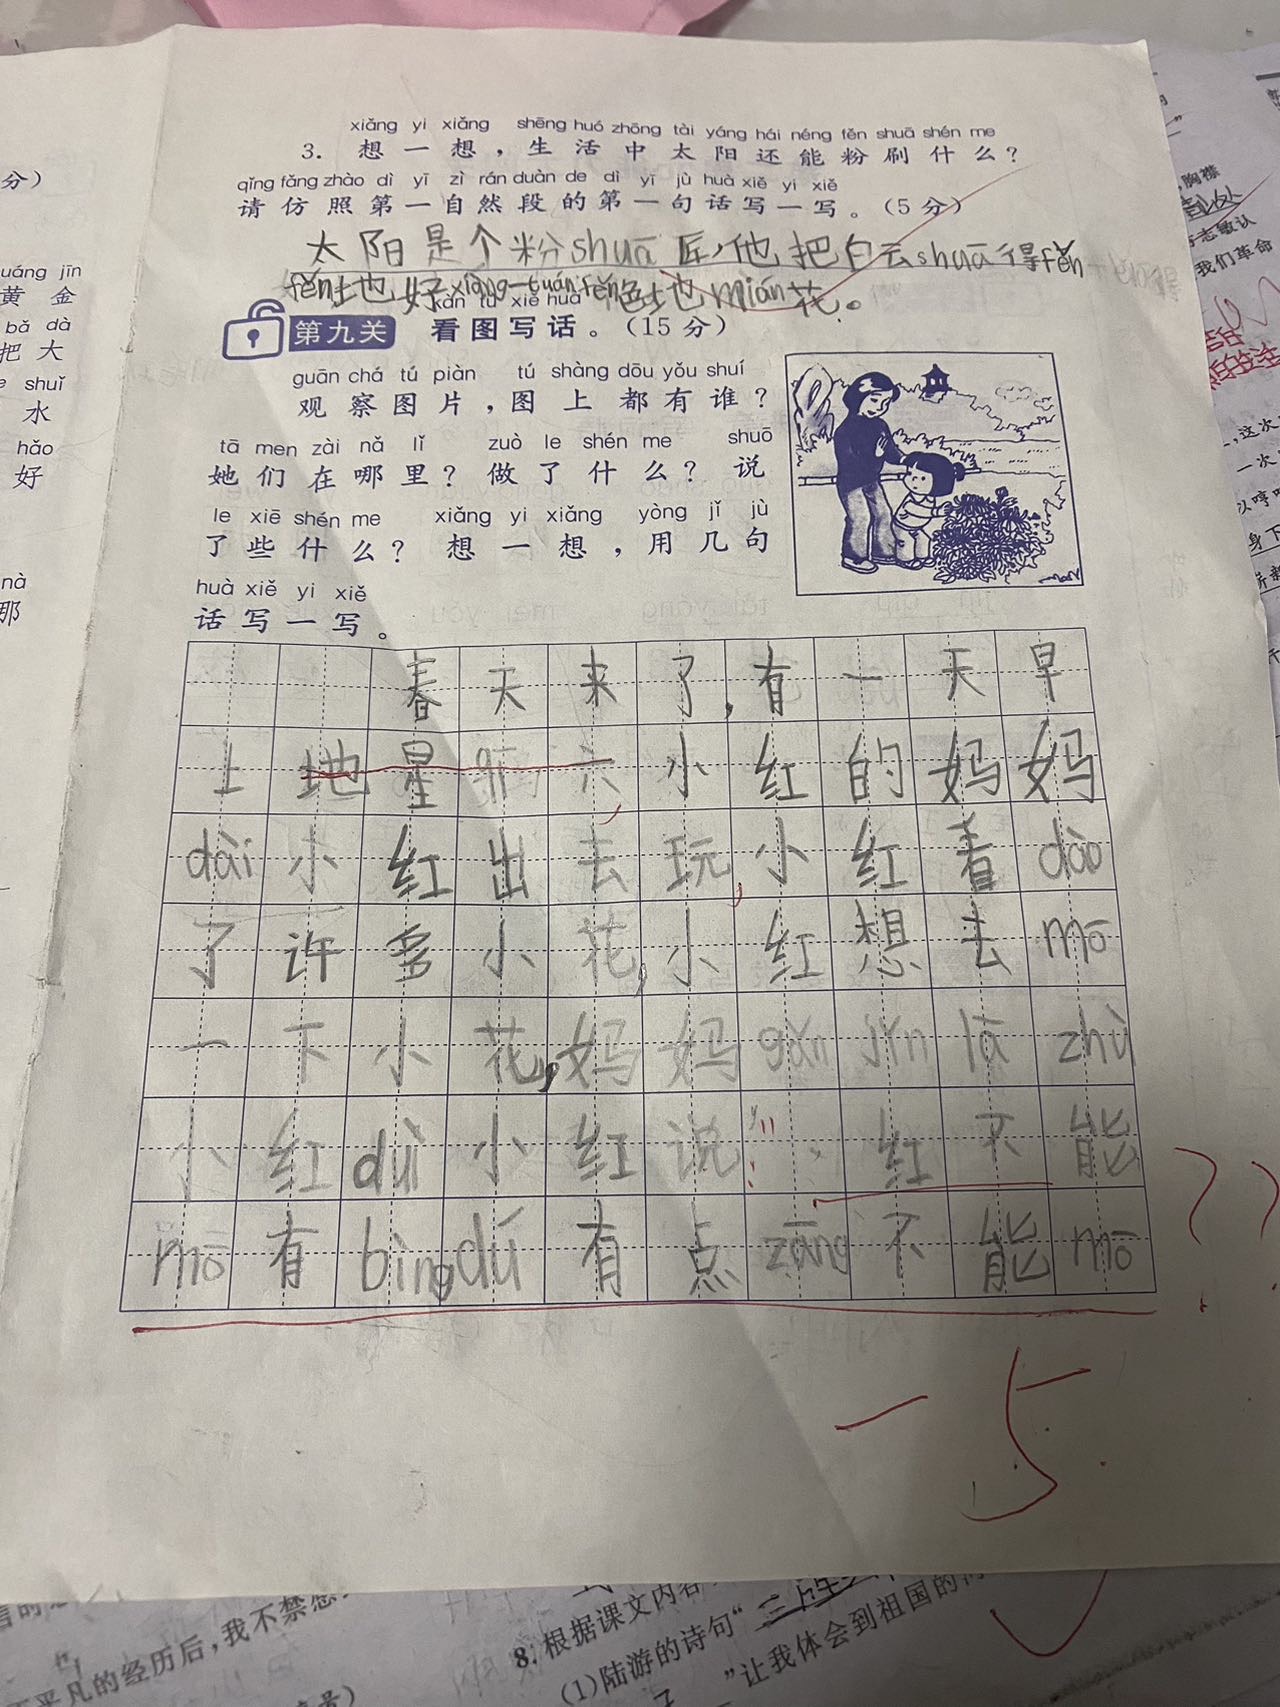 xiǎng yi xiǎng shēng huó zhōng tài yáng hái néng fěn shuā shén me
3. 想一想，生活中太阳还能粉刷什么？
qǐng fǎng zhào dì yī zì rán duàn de dì yī jù huà xiě yi xiě
请仿照第一自然段的第一句话写一写。（5分）
太阳是个粉shuā匠，他把白云shuā得fěn
fěn地好xiàng一tuán fěn色地mián花。
kàn tú xiě huà
第九关 看图写话。（15分）
guān chá tú piàn tú shàng dōu yǒu shuí
观察图片，图上都有谁？
tā men zài nǎ lǐ zuò le shén me shuō
她们在哪里？做了什么？说
le xiē shén me xiǎng yi xiǎng yòng jǐ jù
了些什么？想一想，用几句
huà xiě yi xiě
话写一写。
春天来了，有一天早
上地星期六小红的妈妈
dài小红出去玩，小红看dào
了许多小花，小红想去mō
一下小花，妈妈gǎn jǐn lā zhù
小红duì小红说：“红不能
mō有bìng dú有点zāng不能mō
-5
分）
uáng jīn
黄金
bǎ dà
把大
shuǐ
水
hǎo
好
nà
那
胸襟
志敏认
我们革命
，这次
一次
以哼
身下
平凡的经历后，我不禁想
8. 根据课文内容
(1)陆游的诗句“
”让我体会到祖国的